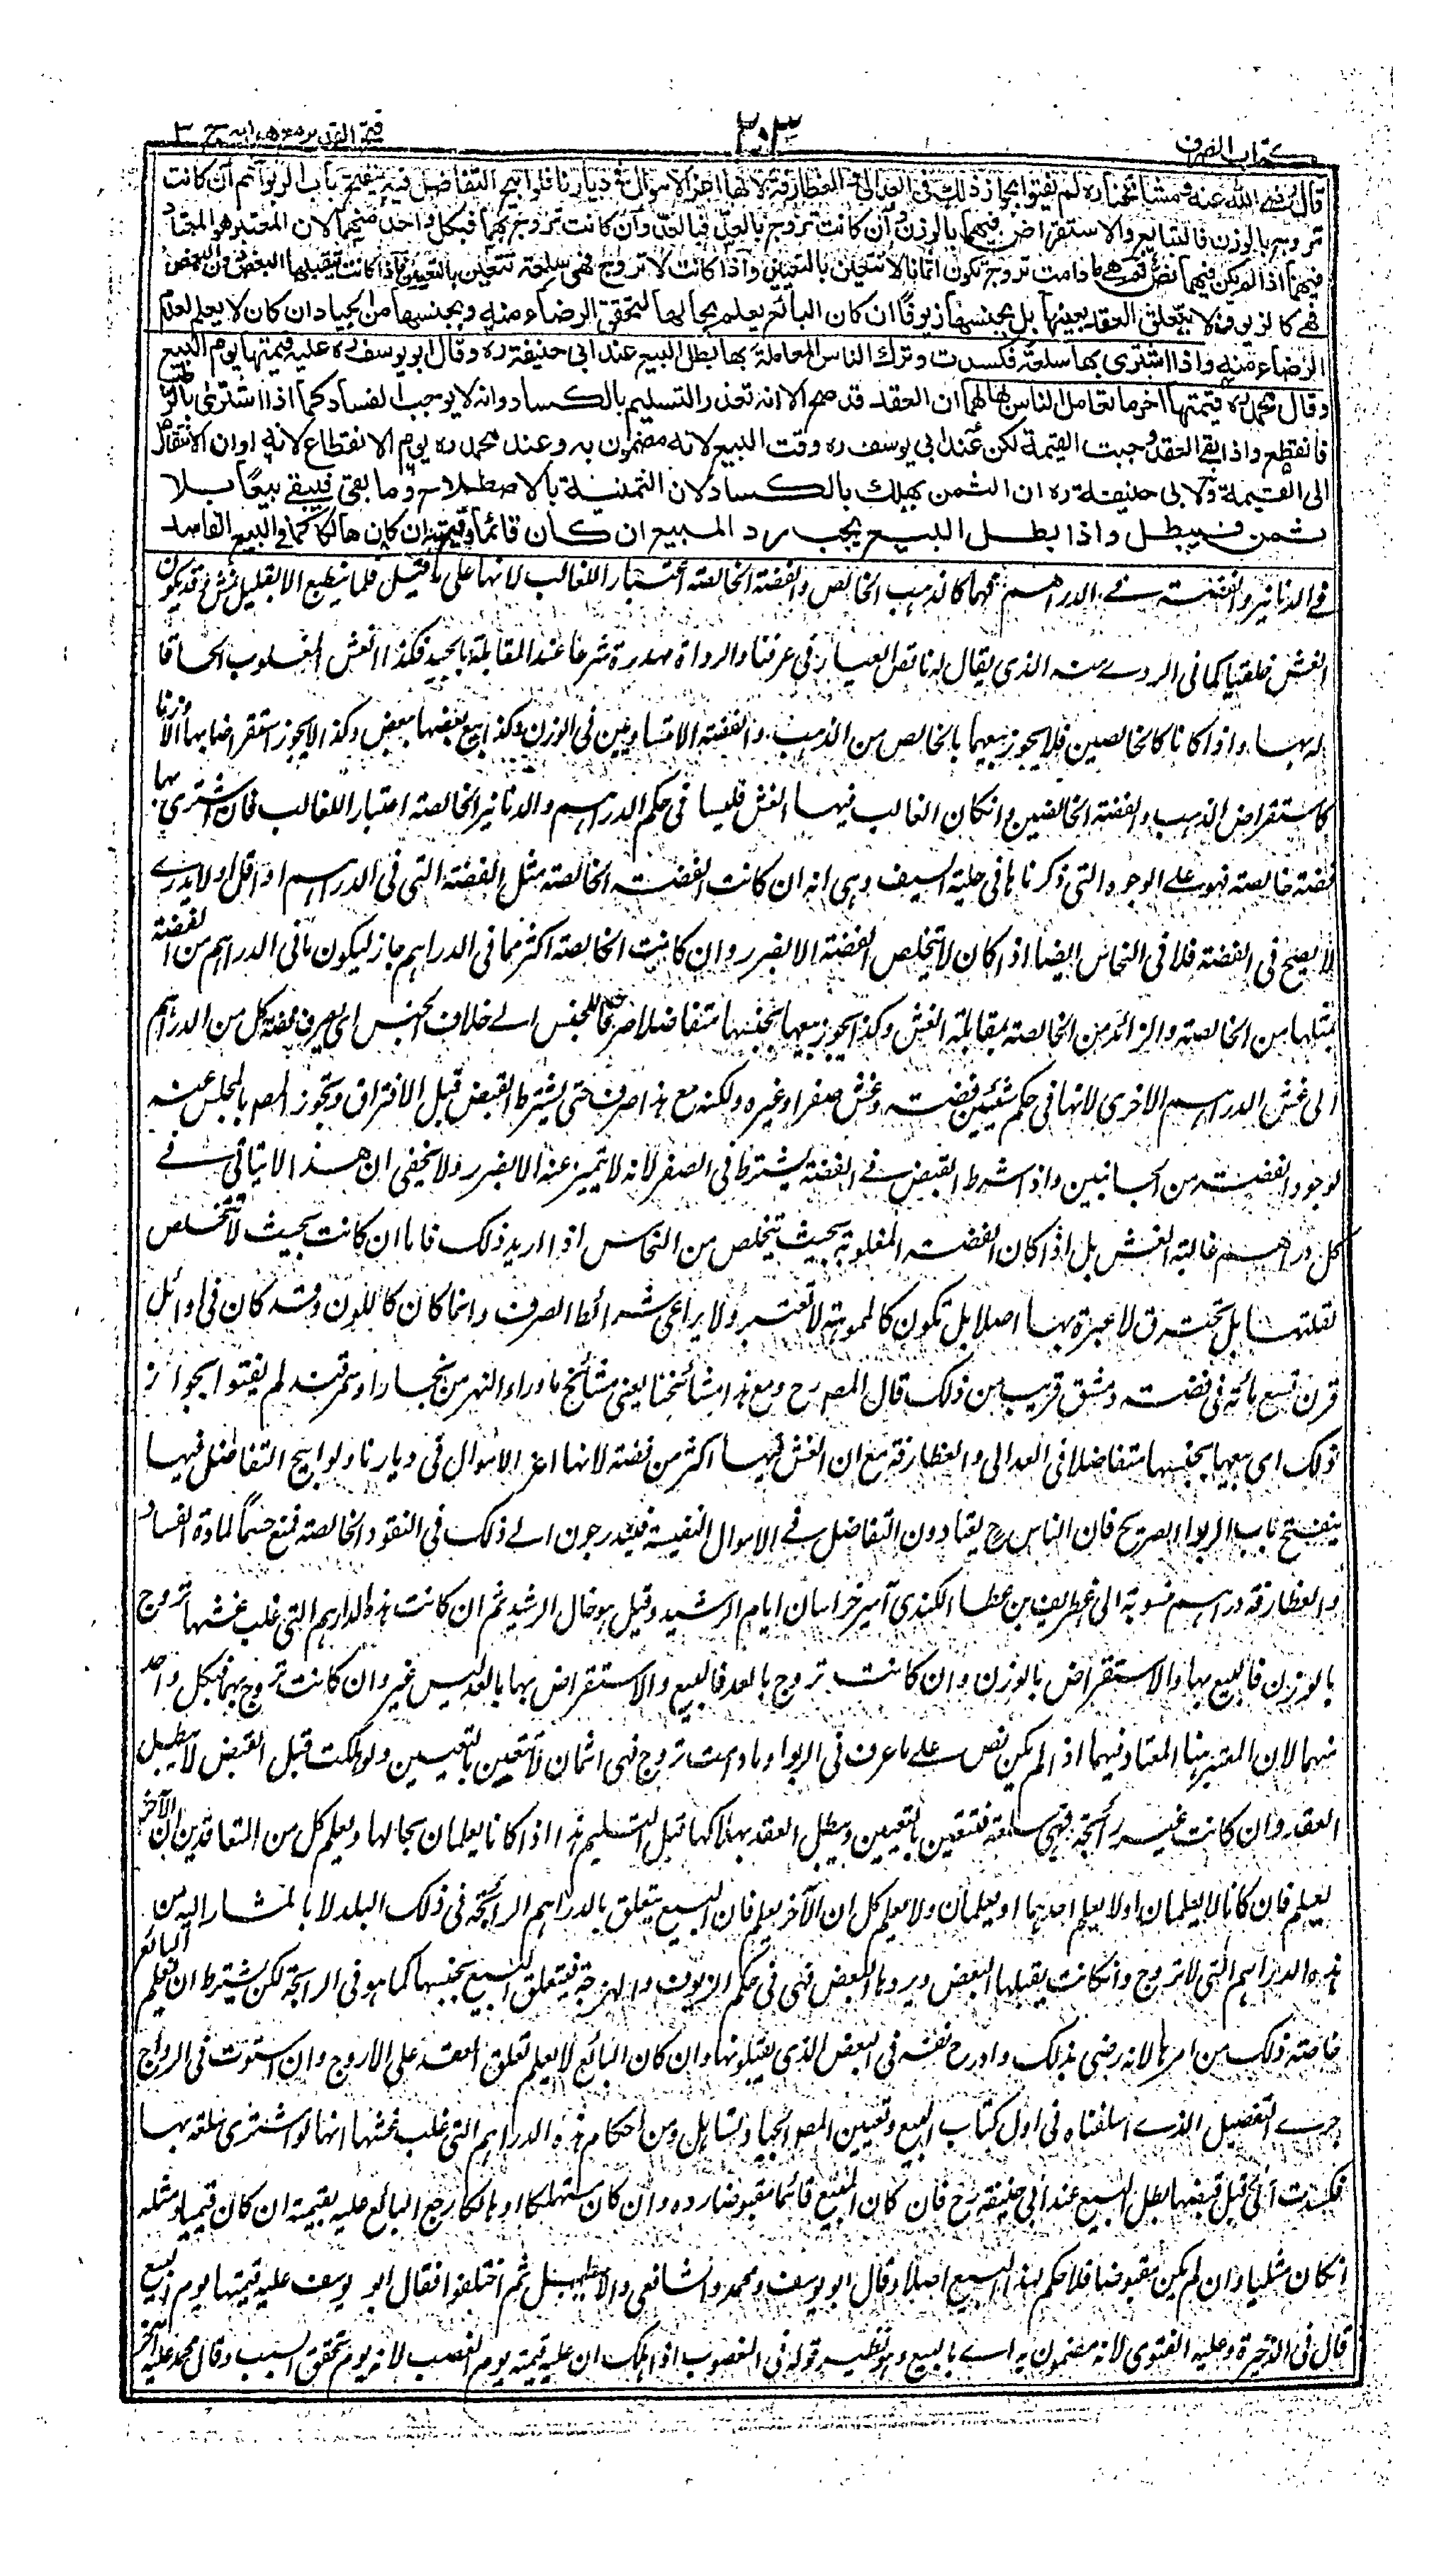 كتاب الصرف
٢٠٣
فتح القدير مع هدايه ج ٣
قال رضي الله عنه ومشائخنا ره لم يفتوا بجواز ذلك في العدالي والغطارفة لانها اعز الاموال في ديارنا فلو ابيح التفاضل فيه ينفتح باب الربوا ثم ان كانت
تروج بالوزن فالتبايع والاستقراض فيهما بالوزن وان كانت تروج بالعد فبالعد وان كانت تروج بهما فبكل واحد منهما لان المعتبر هو المعتاد
فيهما اذا لم يكن فيهما نص ثم هي ما دامت تروج تكون اثمانا لا تتعين بالتعيين واذا كانت لا تروج فهي سلعة تتعين بالتعيين واذا كانت يتقبلها البعض دون البعض
فهي كالزيوف لا يتعلق العقد بعينها بل بجنسها زيوفا ان كان البائع يعلم بحالها لتحقق الرضاء منه وبجنسها من الجياد ان كان لا يعلم لعدم
الرضاء منه واذا اشترى بها سلعة فكسدت وترك الناس المعاملة بها بطل البيع عند ابي حنيفة ره وقال ابو يوسف ره عليه قيمتها يوم البيع
وقال محمد ره قيمتها اخر ما تعامل الناس بها لهما ان العقد قد صح الا انه تعذر التسليم بالكساد وانه لا يوجب الفساد كما اذا اشترى بالرطب
فانقطع واذا بقي العقد وجبت القيمة لكن عند ابي يوسف ره وقت البيع لانه مضمون به وعند محمد ره يوم الانقطاع لانه اوان الانتقال
الى القيمة ولابي حنيفة ره ان الثمن يهلك بالكساد لان الثمنية بالاصطلاح وما بقي فيبقى بيعا بلا
ثمن فيبطل واذا بطل البيع يجب رد المبيع ان كان قائما وقيمته ان كان هالكا كما في البيع الفاسد
في الدنانير والفضة في الدراهم فهما كالذهب الخالص والفضة الخالصة اعتبارا للغالب لانها على ما قيل قلما ينطبع الا بقليل غش وقد يكون
الغش خلقيا كما في الردے منه الذي يقال له ناقص العيار في عرفنا والرداة مهدرة شرعا عند المقابلة بالجيد فكذا الغش المغلوب الحاقا
له بها واذا كانا كالخالصين فلا يجوز بيعهما بالخالص من الذهب والفضة الا متساويين في الوزن وكذا بيع بعضها ببعض وكذا لا يجوز استقراضا بها الا وزنا
كاستقراض الذهب والفضة الخالصين وانكان الغالب فيها الغش فليسا في حكم الدراهم والدنانير الخالصة اعتبارا للغالب فان اشترى بها
فضة خالصة فهو على الوجوه التي ذكرناها في حلية السيف وهي انه ان كانت الفضة الخالصة مثل الفضة التي في الدراهم او اقل او لا يدرے
لا يصح في الفضة فلا في النحاس ايضا اذا كان لا تتخلص الفضة الا بضرر وان كانت الخالصة اكثر مما في الدراهم جاز ليكون ما في الدراهم من الفضة
بمثلها من الخالصة والزائد من الخالصة بمقابلة الغش وكذا يجوز بيعها بجنسها متفاضلا صرفا للجنس الے خلاف الجنس اي يصرف فضة كل من الدراهم
الى غش الدراهم الاخرى لانها في حكم شيئين فضة وغش صفرا وغيره ولكنه مع هذا صرف حتى يشترط القبض قبل الافتراق وتجوز المص بالمجلس عنه
لوجود الفضة من الجانبين واذا شرط القبض في الفضة يشترط في الصفر لانه لا يتميز عنه الا بضرر ولا يخفى ان هذا لا يتاتى في
كل دراهم غالبة الغش بل اذا كان الفضة المغلوبة بحيث تتخلص من النحاس اذا اريد ذلك فاما ان كانت بحيث لا تتخلص
لقلتها بل تحترق لا عبرة بها اصلا بل تكون كالمموهة لا تعتبر ولا يراعى شرائط الصرف وانما كان كاللون وقد كان في اوائل
قرن تسع مائة في فضة دمشق قريب من ذلك قال المص رح ومع هذا مشائخنا يعني مشائخ ماوراء النهر من بخارا وسمرقند لم يفتوا بجواز
ذلك اي بيعها بجنسها متفاضلا في العدالى والغطارفة مع ان الغش فيها اكثر من فضة لانها اعز الاموال في ديارنا ولو ابيح التفاضل فيها
ينفتح باب الربوا الصريح فان الناس ح يعتادون التفاضل في الاموال النفيسة فيتدرجون الے ذلك في النقود الخالصة فمنع حسما لمادة الفساد
والغطارفة دراهم منسوبة الى غطريف بن عطا الكندي امير خراسان ايام الرشيد وقيل هو خال الرشيد ثم ان كانت هذه الدراهم التي غلب غشها تروج
بالوزن فالبيع بها والاستقراض بالوزن وان كانت تروج بالعد فالبيع والاستقراض بها بالعد ليس غير وان كانت تروج بهما فبكل واحد
منهما لان المعتبر هنا المعتاد فيهما اذا لم يكن نص على ما عرف في الربوا وما دامت تروج فهي اثمان لا تتعين بالتعيين ولو هلكت قبل القبض لا يبطل
العقد وان كانت غير رائجة فهي سلعة فتتعين بالتعيين ويبطل العقد بهلاكها قبل التسليم هذا اذا كانا يعلمان بحالها ويعلم كل من المتعاقدين ان الآخر
يعلم فان كانا لا يعلمان او لا يعلم احدهما او يعلمان ولا يعلم كل ان الآخر يعلم فان البيع يتعلق بالدراهم الرائجة في ذلك البلد لا بالمشار اليه من
هذه الدراهم التي لا تروج وانكانت يقبلها البعض ويردها البعض فهي في حكم الزيوف والبهرجة فيتعلق البيع بجنسها كما هو في الرائجة لكن يشترط ان يعلم البائع
خاصة ذلك من امرها لانه رضى بذلك وادرج نفسه في البعض الذي يقبلونها وان كان البائع لا يعلم تعلق العقد على الاروج وان استوت في الرواج
جرے التفصيل الذے اسلفناه في اول كتاب البيع وتعيين المص الجياد تساهل ومن احكام هذه الدراهم التي غلب غشها انها لو اشترى سلعة بها
فكسدت اي قبل قبضها بطل البيع عند ابي حنيفة رح فان كان المبيع قائما مقبوضا رده وان كان مستهلكا او هالكا رجع البائع عليه بقيمته ان كان قيميا ومثله
انكان مثليا وان لم يكن مقبوضا فلا حكم لهذا البيع اصلا وقال ابو يوسف ومحمد والشافعي والا يبطل ثم اختلفوا فقال ابو يوسف عليه قيمتها يوم البيع
قال في الذخيرة وعليه الفتوى لانه مضمون به اے بالبيع وهو نظير قوله في المغصوب اذا هلك ان عليه قيمته يوم الغصب لانه يوم تحقق السبب وقال محمد عليه